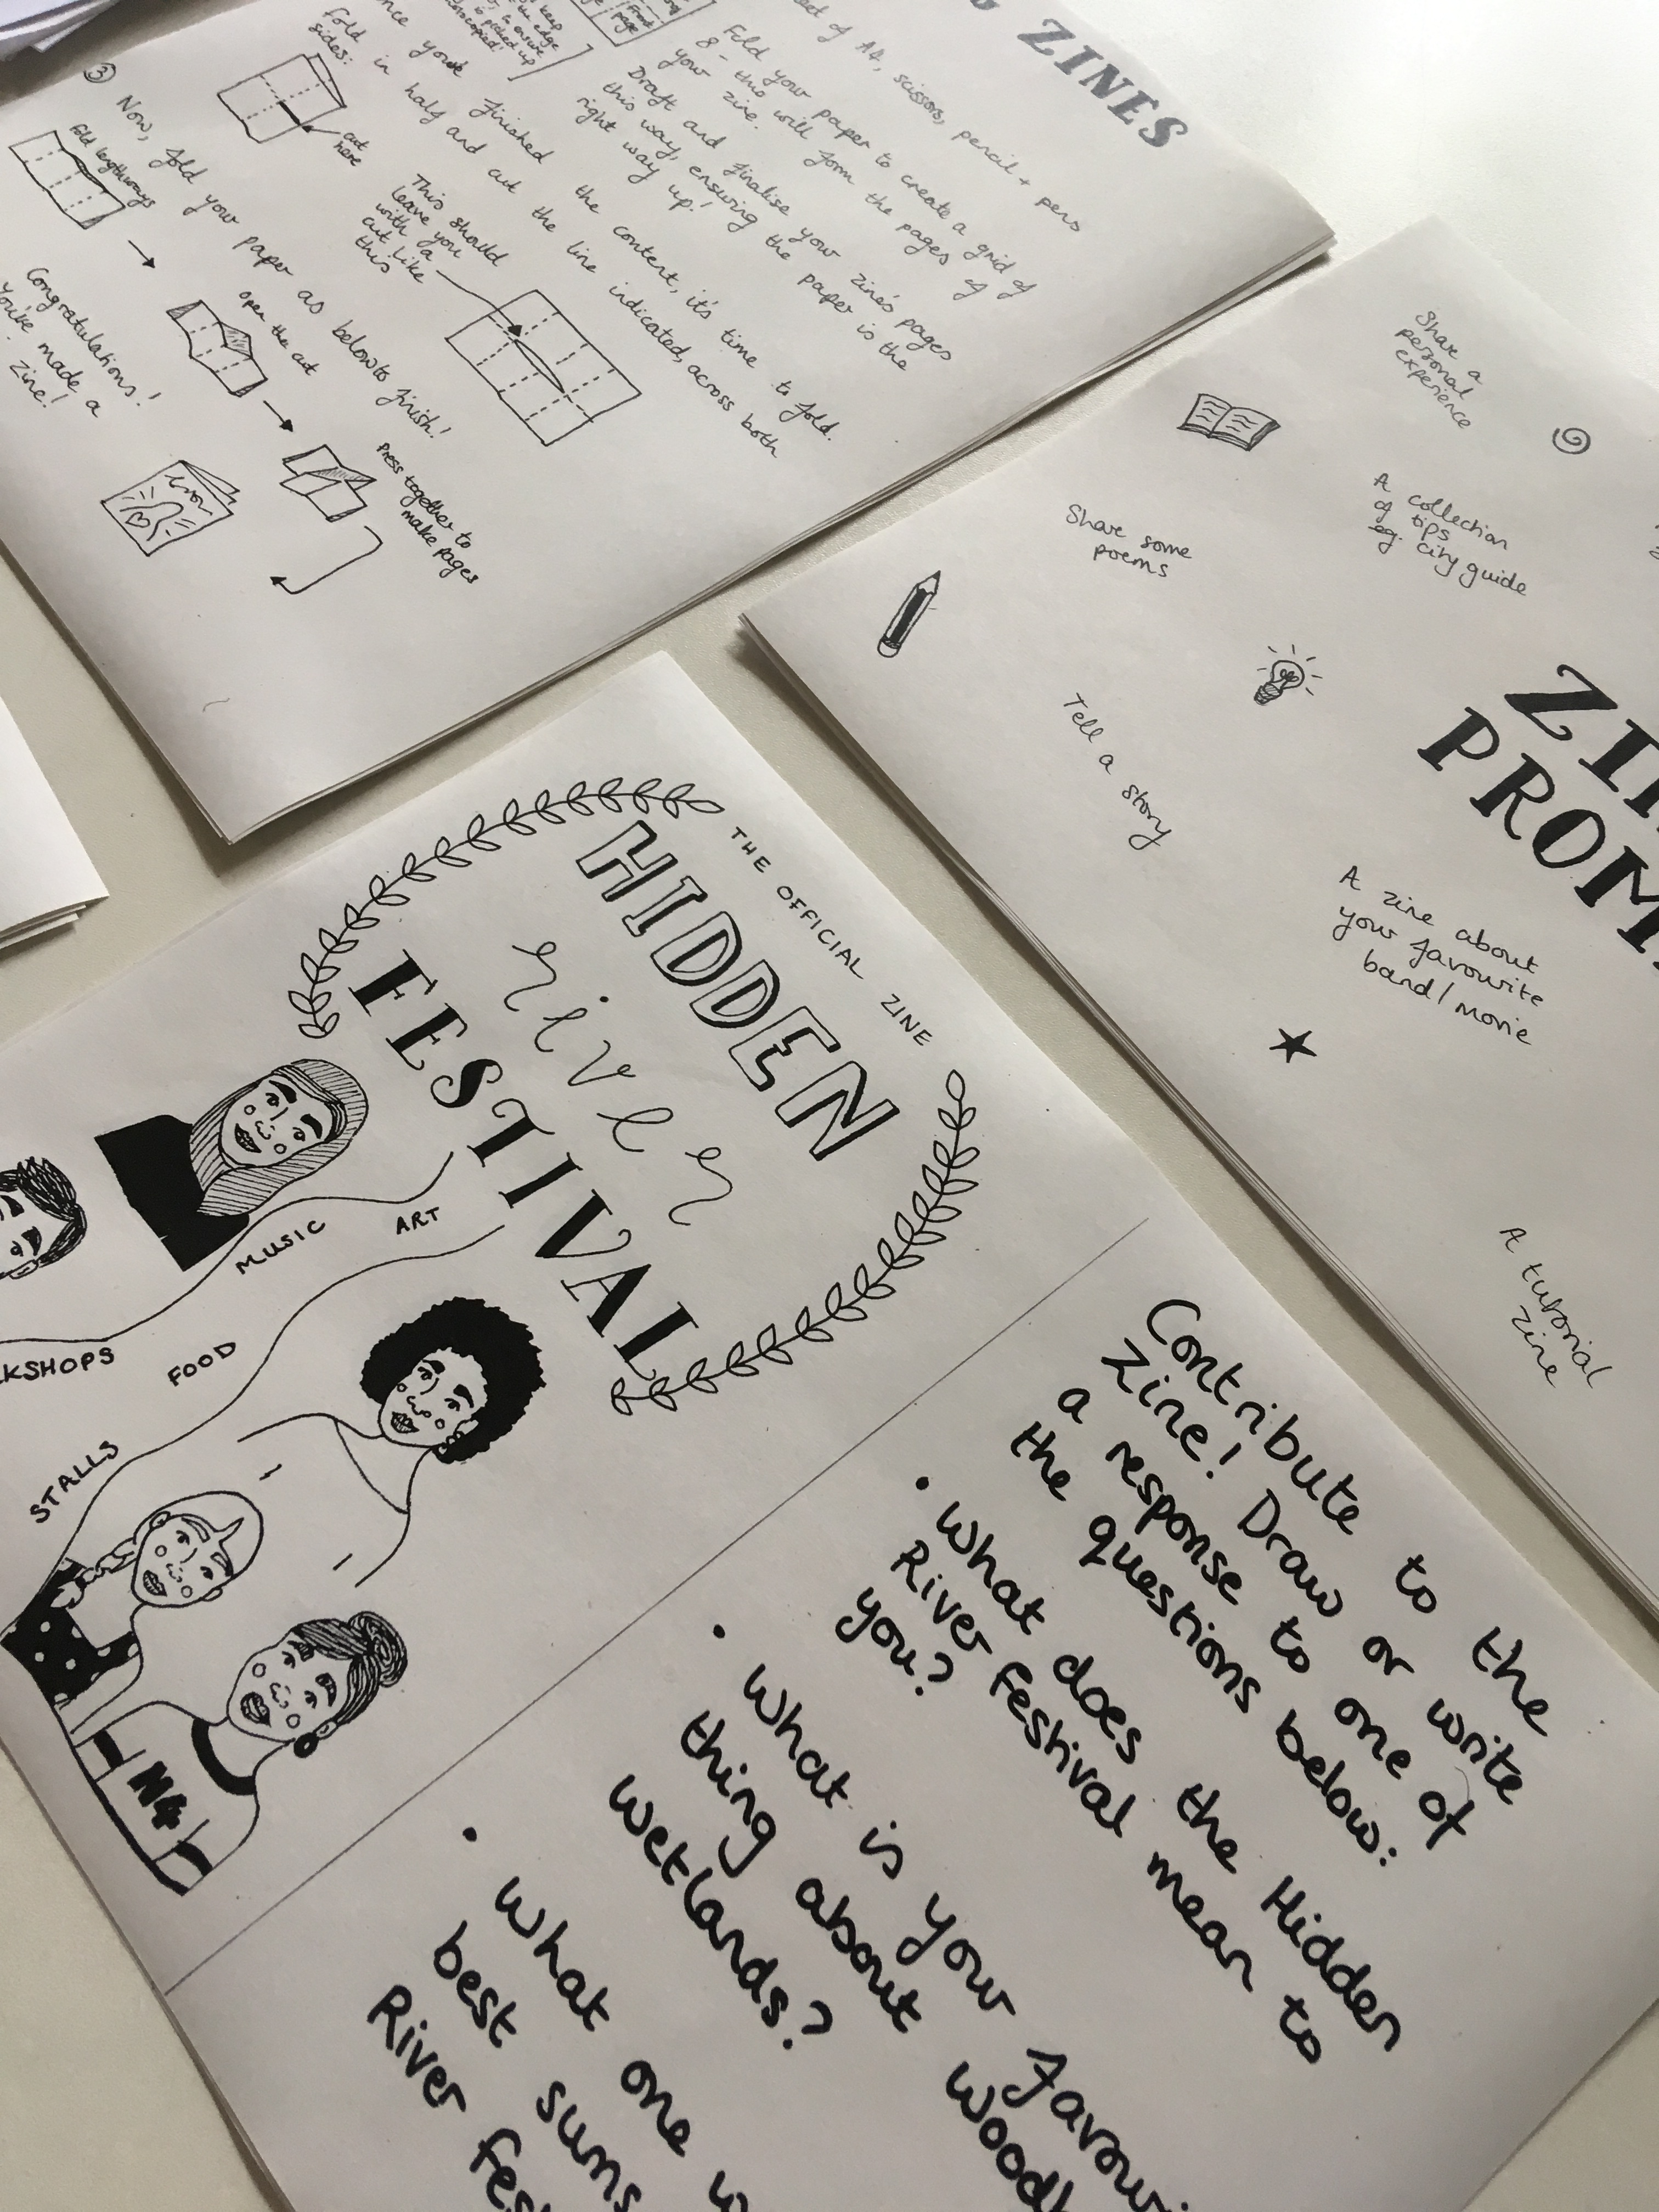 ZINES
of A4, scissors, pencil + pens
Fold your paper to create a grid of
8 - this will form the pages of
your zine.
Draft and finalise your zine's pages
this way, ensuring the paper is the
right way up!
Front
page
keep
the edge
to ensure
is picked up
photocopied!
your finished the content, it's time to fold.
Fold in half and cut the line indicated, across both
sides:
cut
here
This should
leave you
with a
cut like
this
③ Now, fold your paper as below to finish!
fold lengthways
open the cut
Press together to
make pages
Congratulations!
You've made a
zine!
Share a
personal
experience
A collection
of tips
eg. city guide
Share some
poems
Tell a story
PROM
A zine about
your favourite
band/movie
A tutorial
zine
THE OFFICIAL ZINE
HIDDEN
river
FESTIVAL
MUSIC
ART
KSHOPS
FOOD
STALLS
N4
Contribute to the
Zine! Draw or write
a response to one of
the questions below:
• What does the Hidden
River Festival mean to
you?
• What is your favouri
thing about Woodb
Wetlands?
• What one w
best sums
River Fes